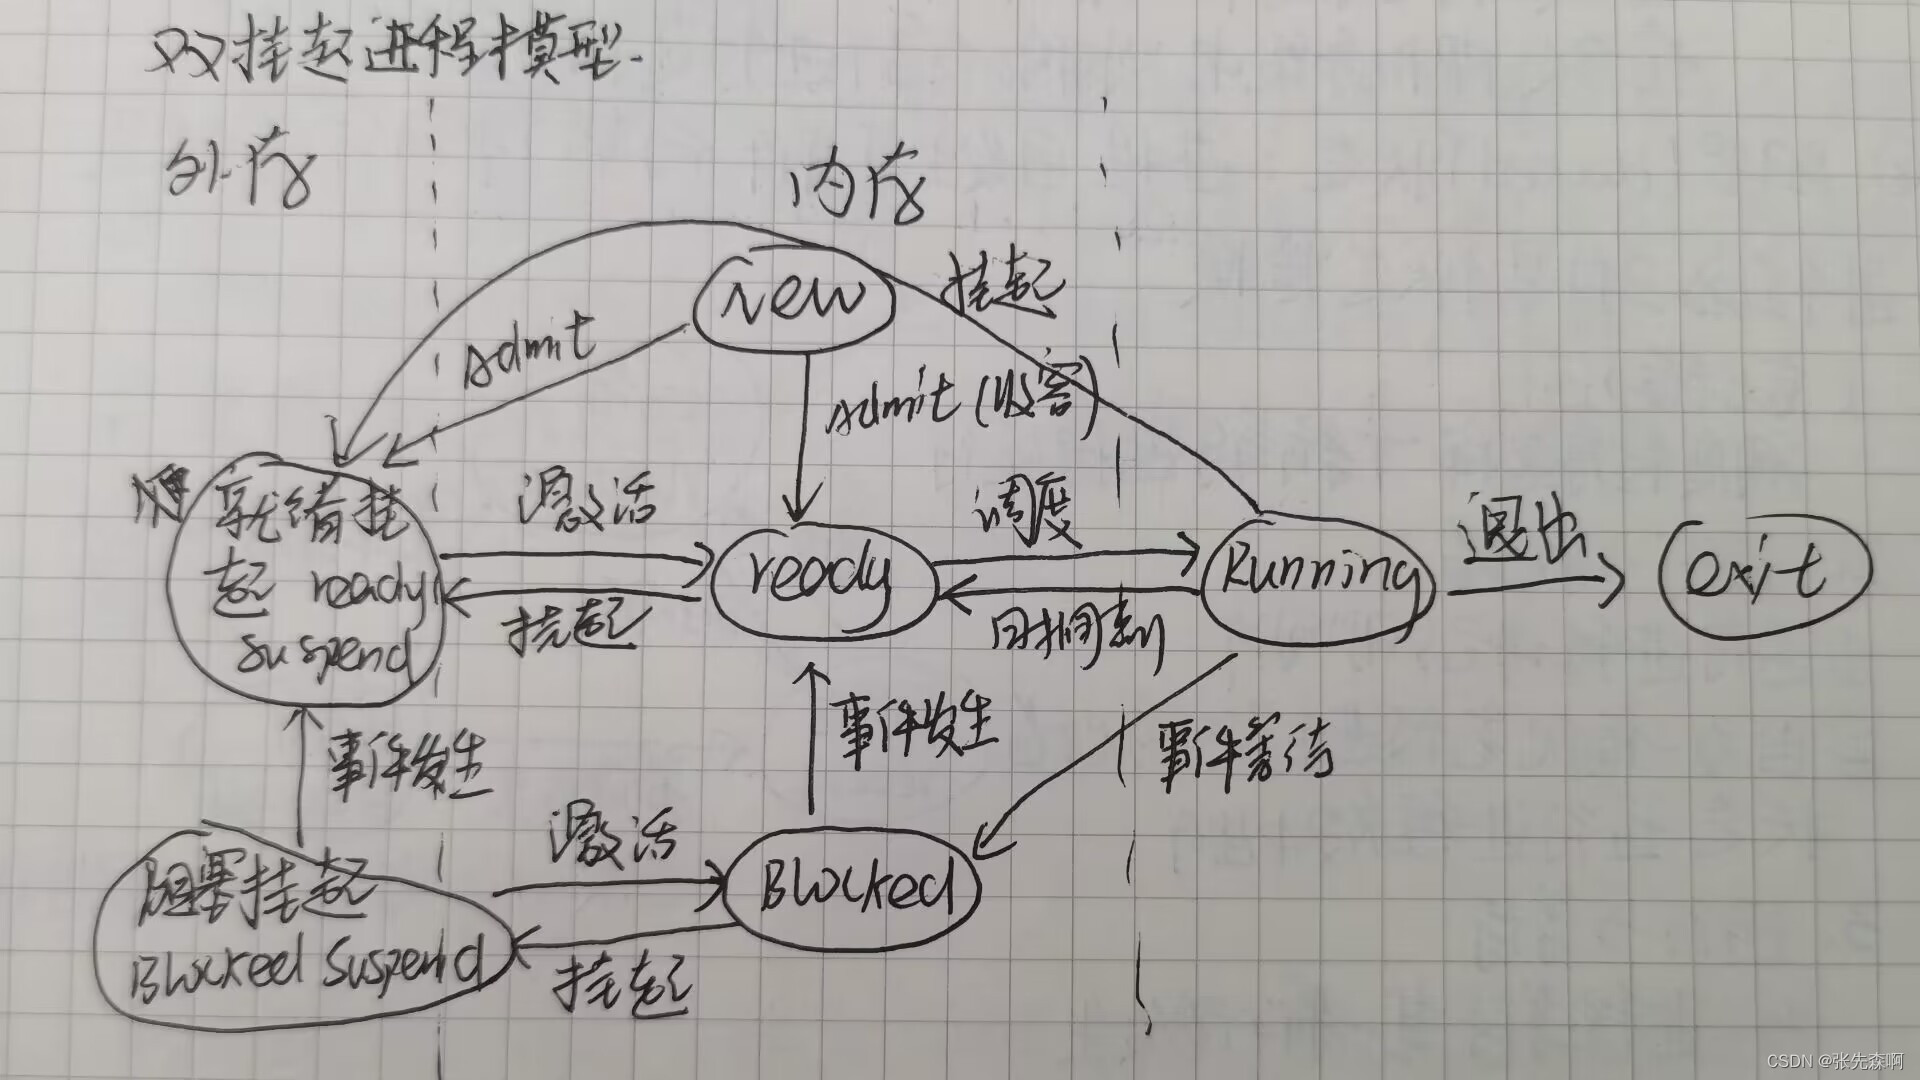 双挂起进程模型.
外存
内存
new
挂起
Admit
Admit (收容)
就绪挂
起 ready
suspend
激活
挂起
ready
调度
时间到
Running
退出
exit
事件发生
事件发生
事件等待
阻塞挂起
Blocked Suspend
激活
挂起
Blocked
CSDN @张先森啊